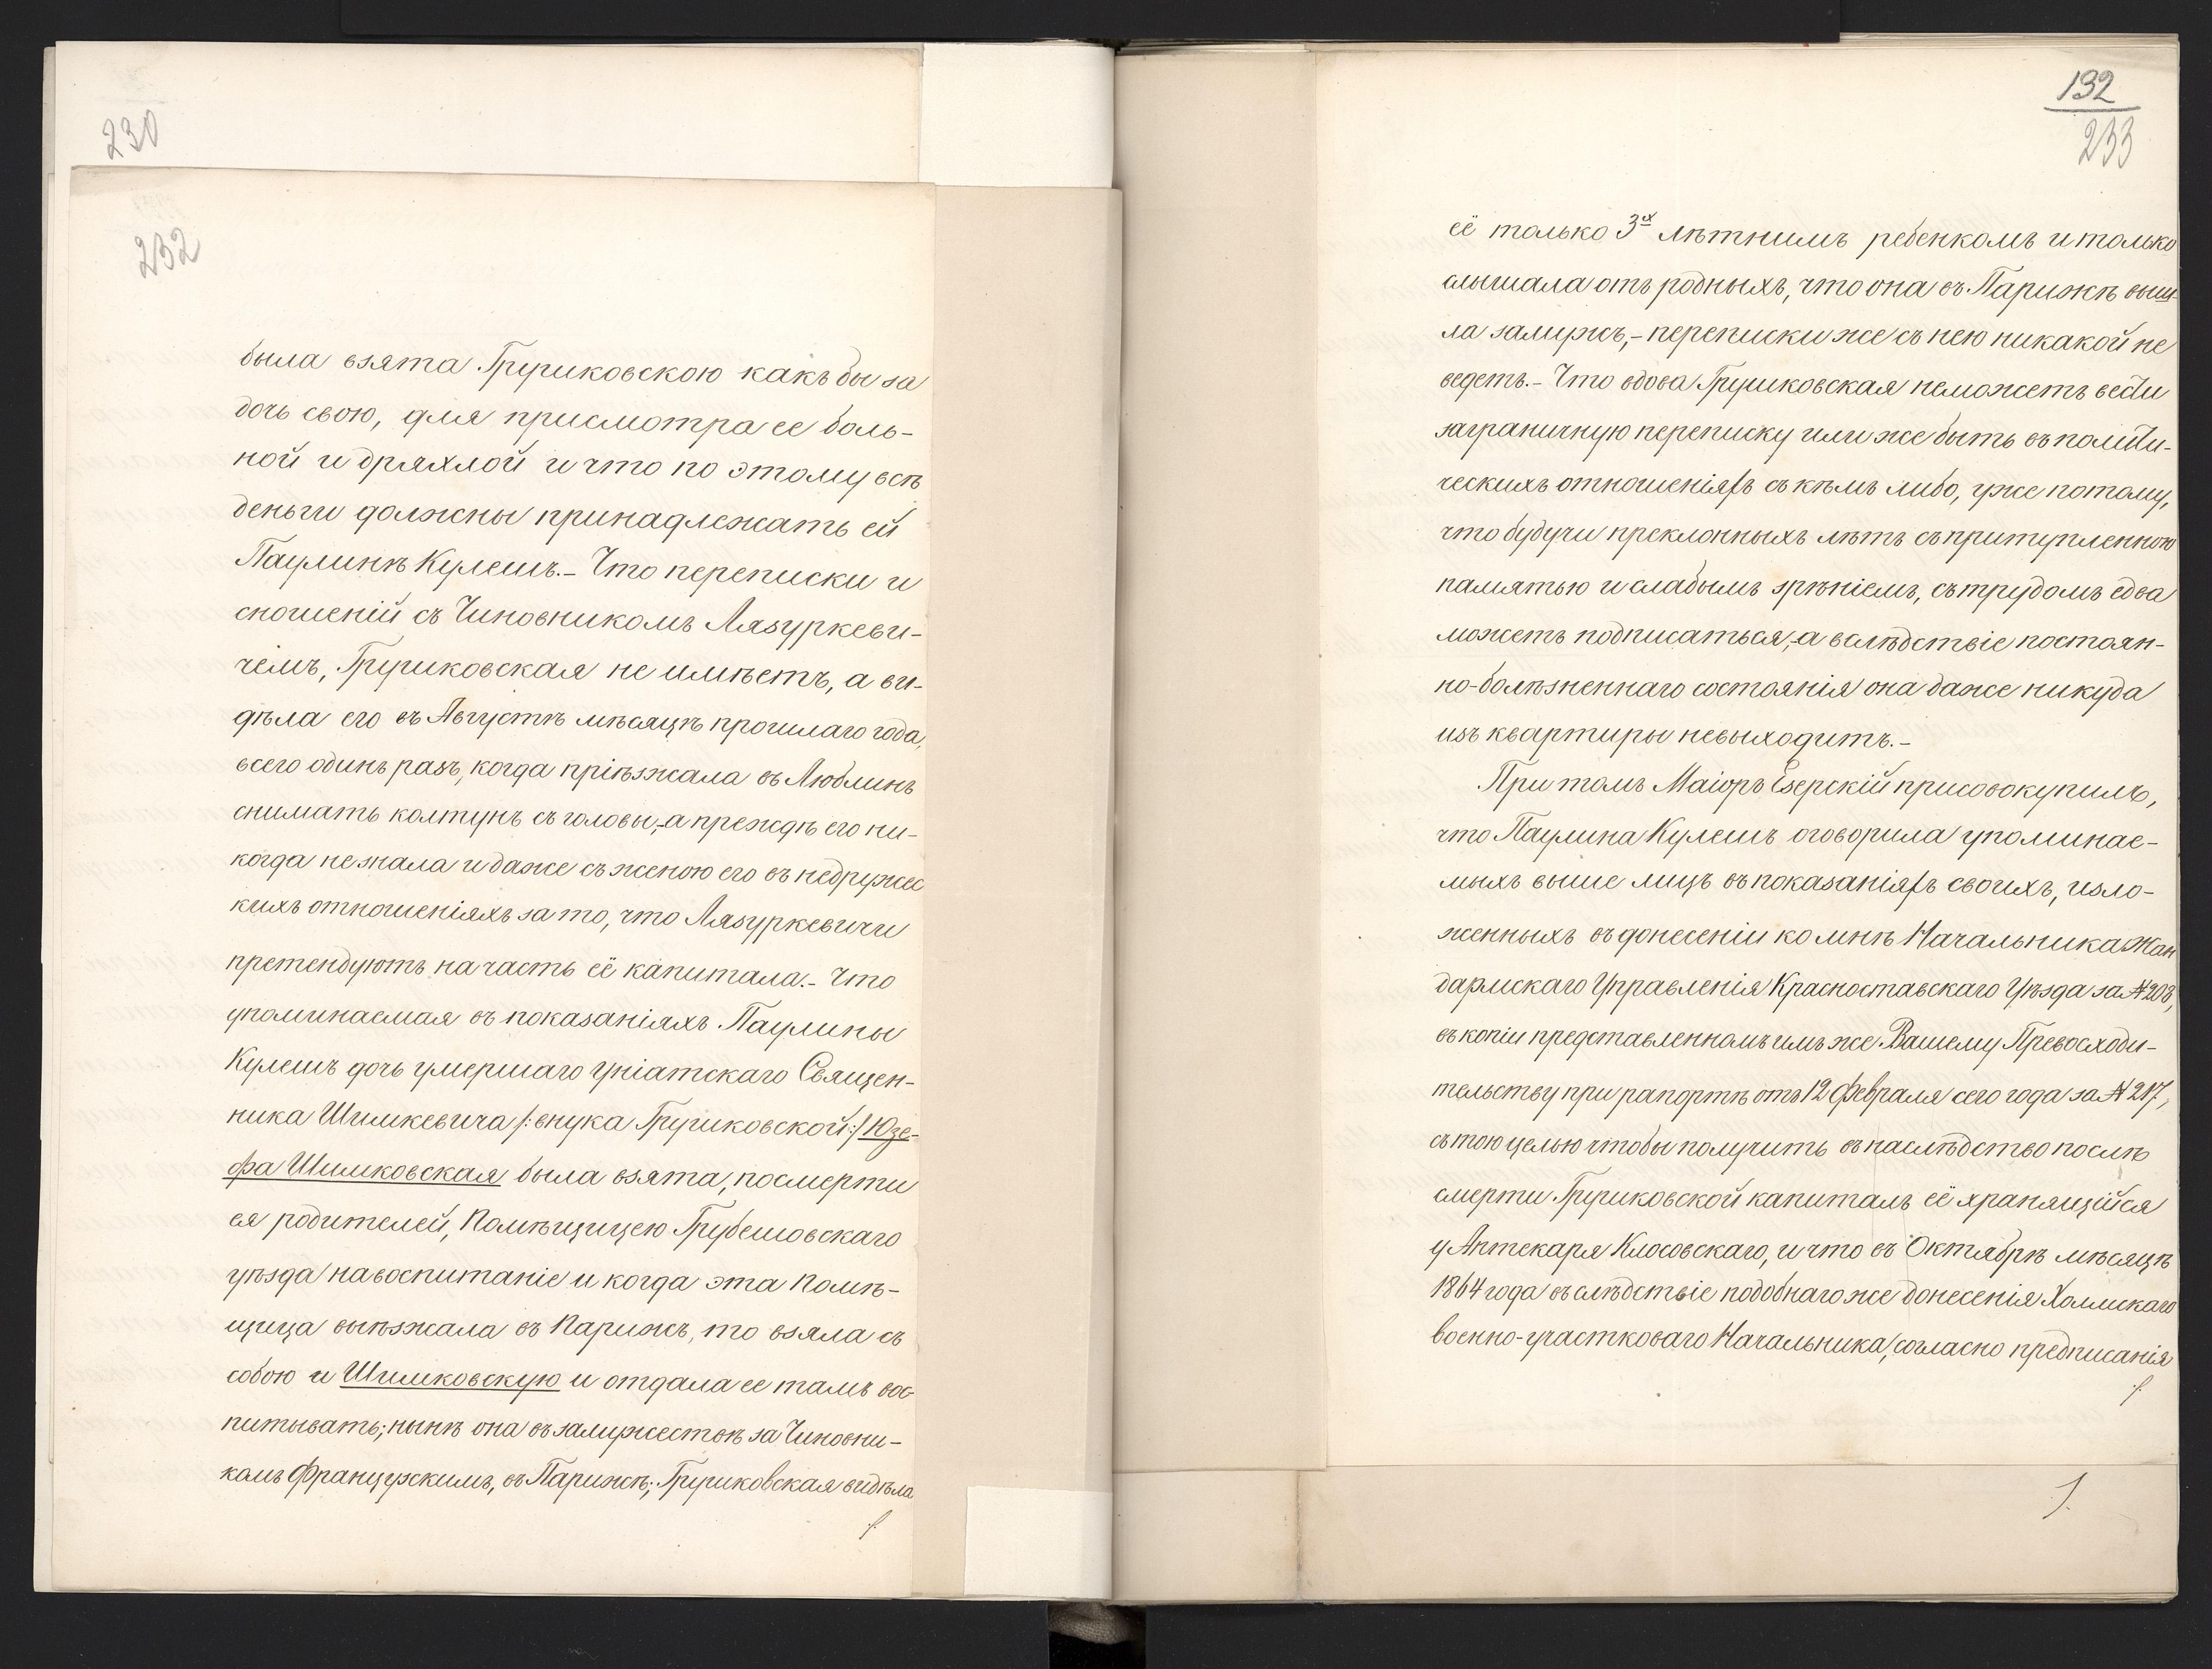 230
232
была взята Грушковскою какъ бы за
дочь свою, для присмотра ее боль-
ной и дряхлой и что по этому всѣ
деньги должны принадлежать ей
Паулинѣ Кулешъ.- Что переписки и
сношеній съ Чиновникомъ Лязуркеви-
чемъ, Грушковская не имѣетъ, а ви-
дѣла его въ Августѣ мѣсяцѣ прошлаго года,
всего одинъ разъ, когда пріѣзжала въ Люблинъ
снимать колтунъ съ головы,-а преждѣ его ни-
когда не знала и даже съ женою его въ недружес
кихъ отношеніяхъ за то, что Лязуркевичи
претендуютъ на часть её капитала.- Что
упоминаемая въ показаніяхъ Паулины
Кулешъ дочь умершаго уніатскаго Священ-
ника Шимкевича /:внука Грушковской:/ Юзе-
фа Шимковская была взята, посмерти
ея родителей, Помѣщицею Грубешовскаго
уѣзда на воспитаніе и когда эта помѣ-
щица выѣзжала въ Парижъ, то взяла съ
собою и Шимковскую и отдала ее тамъ вос-
питывать; нынѣ она въ замужествѣ за Чиновни-
комъ Французскимъ, въ Парижѣ; Грушковская видѣла
/.
132
233
её только 3х лѣтнимъ ребенкомъ и только
слышала отъ родныхъ, что она въ Парижѣ выш-
ла замужъ,- переписки же съ нею никакой не
ведетъ.- Что вдова Грушковская неможетъ вести
заграничную переписку или же быть въ полити-
ческихъ отношеніяхъ съ кѣмъ либо, уже потому,
что будучи преклонныхъ лѣтъ съ притупленною
памятью и слабымъ зрѣніемъ, съ трудомъ едва
можетъ подписаться,-а вслѣдствіе постоян-
но-болѣзненнаго состоянія она даже никуда
изъ квартиры невыходитъ.-
При томъ Маіоръ Езерскій присовокупилъ,
что Паулина Кулешъ оговорила упоминае-
мыхъ выше лицъ въ показаніяхъ своихъ, изло-
женныхъ въ донесеніи ко мнѣ Начальника Жан
дармскаго Управленія Красноставскаго Уѣзда за № 208,
въ копіи представленномъ имъ же Вашему Превосходи-
тельству при рапортѣ отъ 12 Февраля сего года за № 217,
съ тою целью чтобы получить въ наслѣдство послѣ
смерти Грушковской капиталъ её хранящійся
у Аптекаря Клосовскаго, и что въ Октябрѣ мѣсяцѣ
1864 года въ слѣдствіе подобнаго же донесенія Холмскаго
военно-участковаго Начальника, согласно предписанія
/.